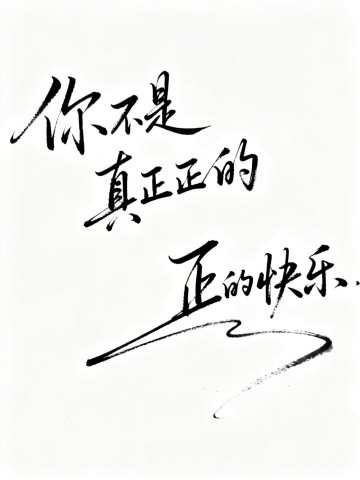 你不是
真正正的
正的快乐.